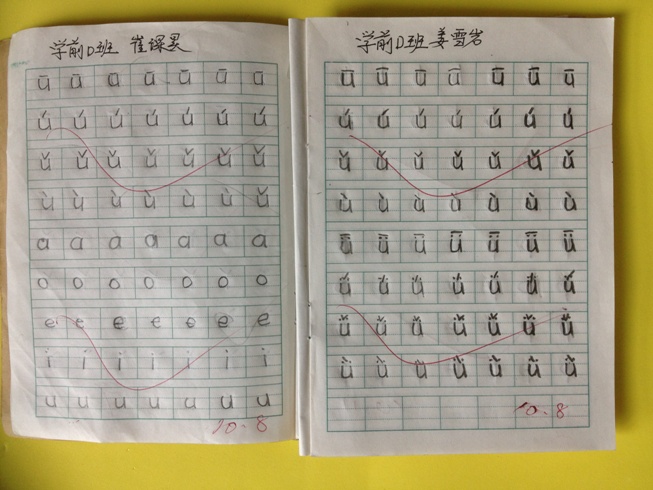 学前D班 崔
ū ū ū ū ū ū ū
ú ú ú ú ú ú ú
ǔ ǔ ǔ ǔ ǔ ǔ ǔ
ù ù ù ǔ ù ù ǔ
a a a a a a a
o o o o o o o
e e e e e e e
i i i i i i i
u u u u u u u
10.8
学前D班 姜雪岩
ū ū ū ū ū ū ū
ú ú ú ú ú ú ú
ǔ ǔ ǔ ǔ ǔ ǔ ǔ
ù ù ù ù ù ù ù
ǖ ǖ ǖ ǖ ǖ ǖ ǖ
ǘ ǘ ǘ ǘ ǘ ǘ ǘ
ǚ ǚ ǚ ǚ ǚ ǚ ǚ
ǜ ǜ ǜ ǜ ǜ ǜ ǜ
10.8